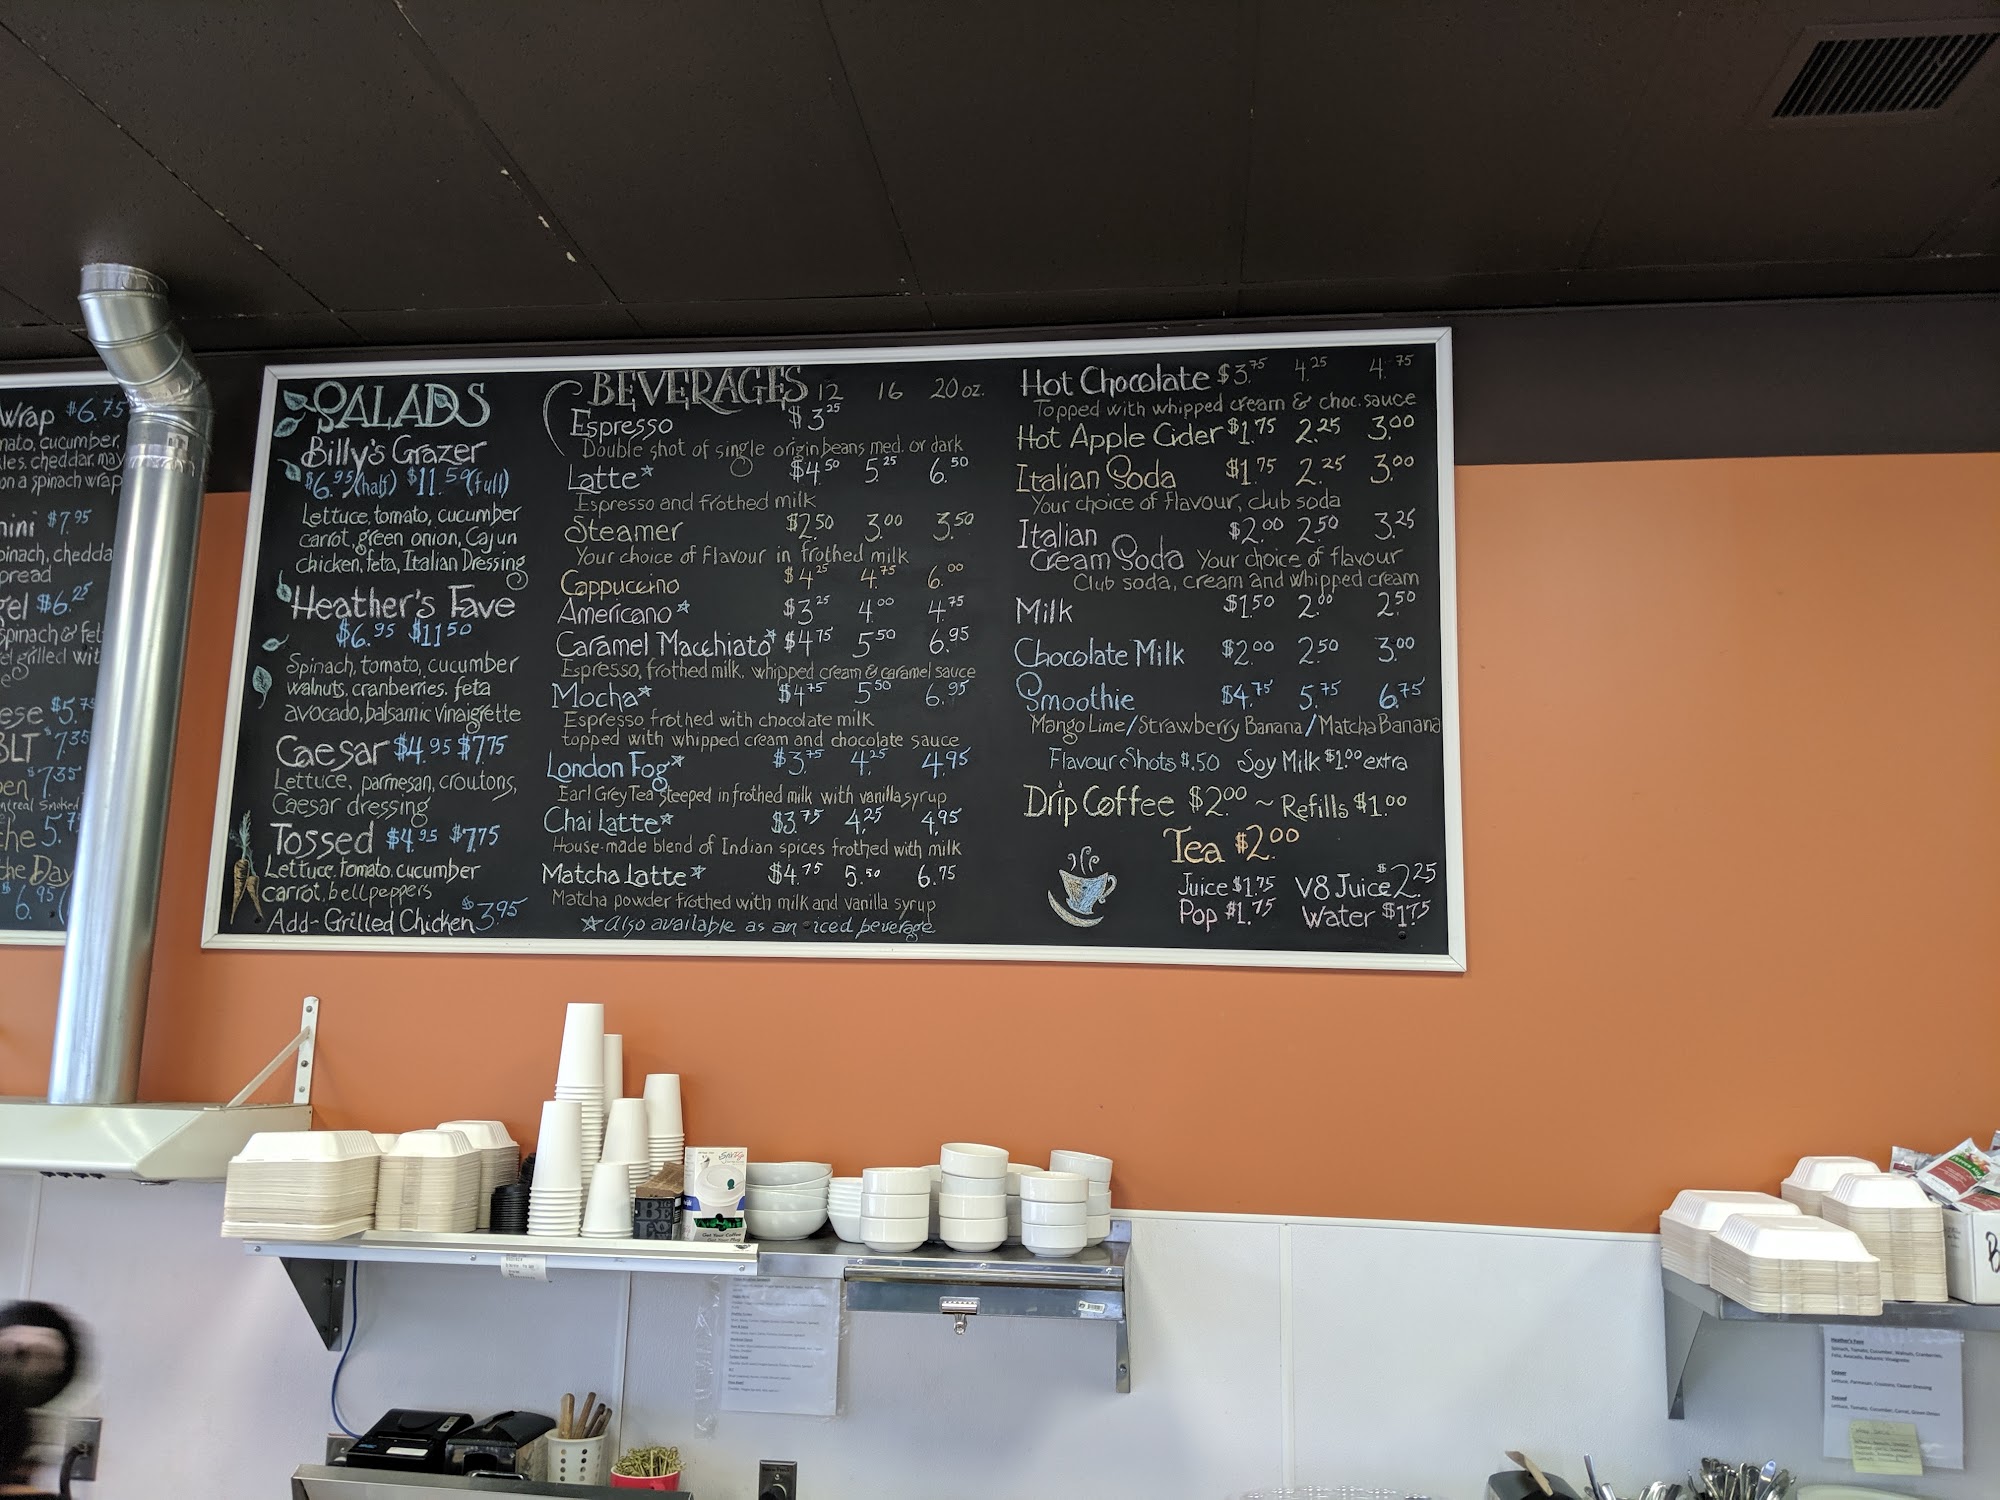 wrap $6.75
cucumber,
cheddar, may
on a spinach wrap
$7.95
spinach, chedda
$6.25
spinach & fet
grilled wit
$5.75
BLT $7.35
$7.35
5.75
the Day
$6.95
SALADS
Billy's Grazer
$6.95 (half) $11.50 (full)
Lettuce, tomato, cucumber
carrot, green onion, Cajun
chicken, feta, Italian Dressing
Heather's Fave
$6.95 $11.50
Spinach, tomato, cucumber
walnuts, cranberries, feta
avocado, balsamic vinaigrette
Caesar $4.95 $7.75
Lettuce, parmesan, croutons,
Caesar dressing
Tossed $4.95 $7.75
Lettuce, tomato, cucumber
carrot, bell peppers
Add-Grilled Chicken $3.95
BEVERAGES 12 16 20 oz.
Espresso $3.25
Double shot of single origin beans med. or dark
Latte* $4.50 5.25 6.50
Espresso and frothed milk
Steamer $2.50 3.00 3.50
Your choice of flavour in frothed milk
Cappuccino $4.25 4.75 6.00
Americano* $3.25 4.00 4.75
Caramel Macchiato* $4.75 5.50 6.95
Espresso, frothed milk, whipped cream & caramel sauce
Mocha* $4.75 5.50 6.95
Espresso frothed with chocolate milk
topped with whipped cream and chocolate sauce
London Fog* $3.75 4.25 4.95
Earl Grey Tea steeped in frothed milk with vanilla syrup
Chai Latte* $3.75 4.25 4.95
House-made blend of Indian spices frothed with milk
Matcha Latte* $4.75 5.50 6.75
Matcha powder frothed with milk and vanilla syrup
*Also available as an iced beverage
Hot Chocolate $3.75 4.25 4.75
Topped with whipped cream & choc. sauce
Hot Apple Cider $1.75 2.25 3.00
Italian Soda $1.75 2.25 3.00
Your choice of flavour, club soda
Italian $2.00 2.50 3.25
Cream Soda Your choice of flavour
Club soda, cream and whipped cream
Milk $1.50 2.00 2.50
Chocolate Milk $2.00 2.50 3.00
Smoothie $4.75 5.75 6.75
Mango Lime/Strawberry Banana/Matcha Banana
Flavour Shots $.50 Soy Milk $1.00 extra
Drip Coffee $2.00 ~ Refills $1.00
Tea $2.00
Juice $1.75 V8 Juice $2.25
Pop $1.75 Water $1.75
Get Your Coffee
Heather's Fave
Spinach, Tomato, Cucumber, Walnuts, Cranberries,
Feta, Avocado, Balsamic Vinaigrette
Caesar
Lettuce, Parmesan, Croutons, Caesar Dressing
Tossed
Lettuce, Tomato, Cucumber, Carrot, Green Onion